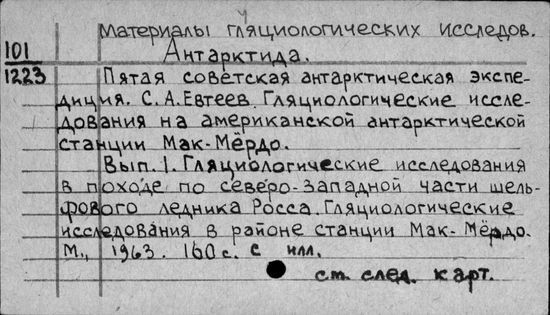 Материалы гляциологических исследов.
101 Антарктида.
1223 Пятая советская антарктическая экспе-
диция. С.А.Евтеев. Гляциологические иссле-
дования на американской антарктической
станции Мак-Мёрдо.
Вып. 1. Гляциологические исследования
в походе по северо-западной части шель-
фового ледника Росса. Гляциологические
исследования в районе станции Мак-Мёрдо.
М., 1963. 160 с. с илл.
ст. след. карт.